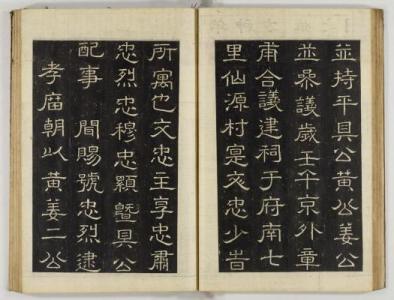 並持平具公黃公姜公
並參議歲壬午京外章
甫合議建祠于府南七
里仙源村寔文忠少旹
所寓也文忠主享忠肅
忠烈忠穆忠顯曁具公
配事 聞賜號忠烈逮
孝廟朝以黃姜二公